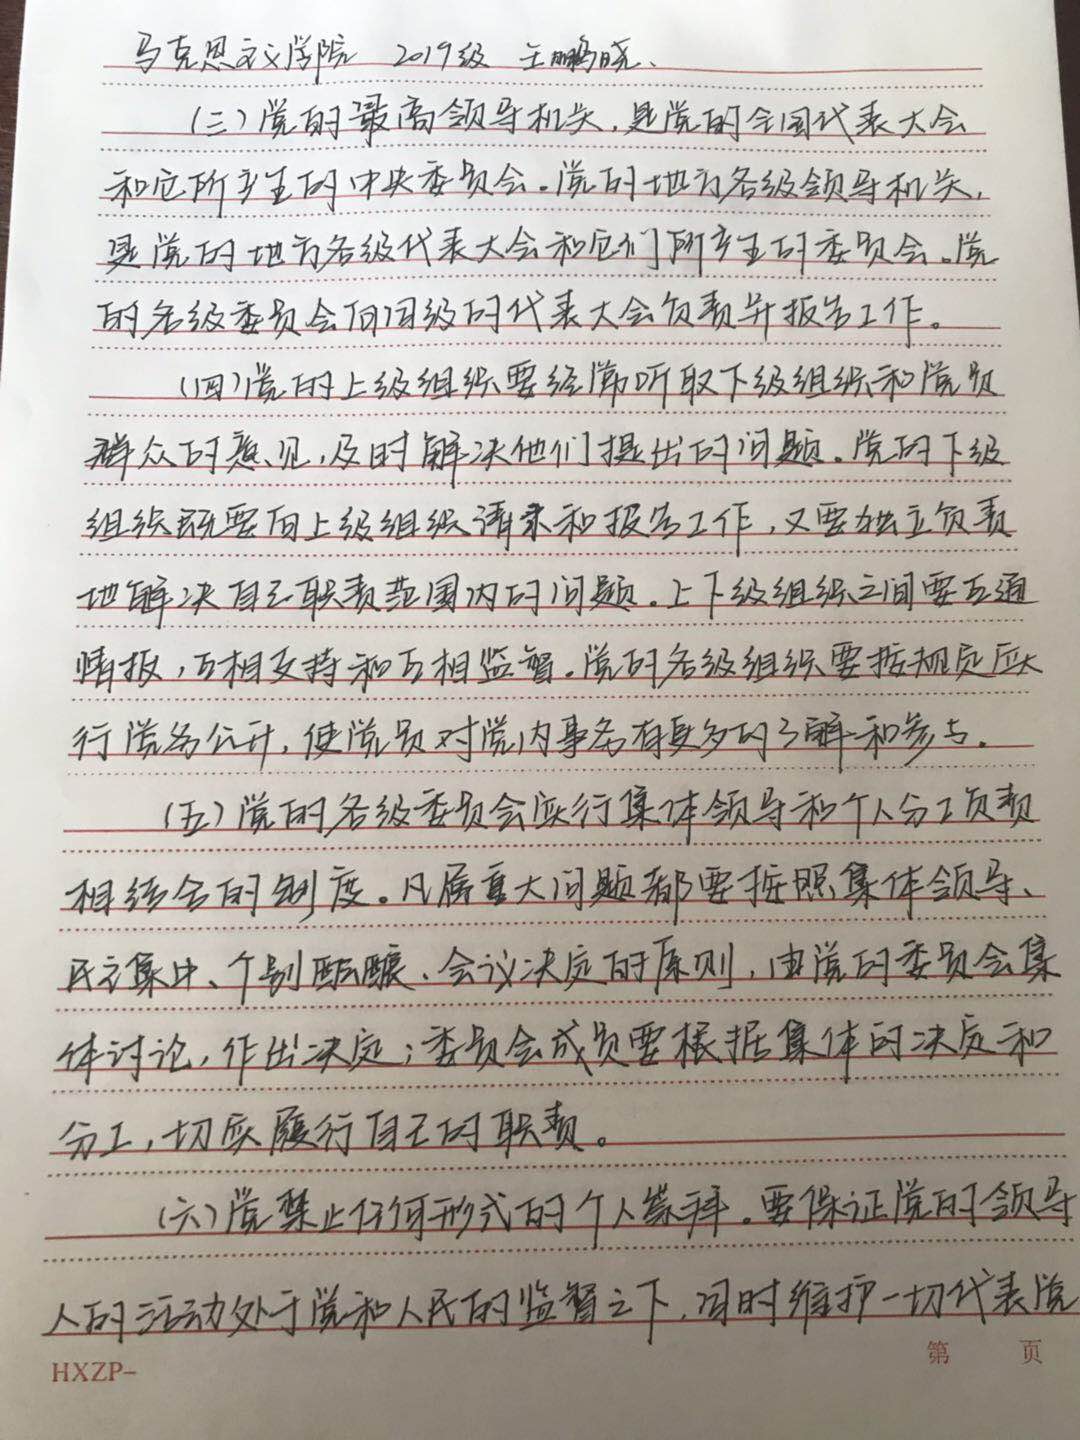 马克思主义学院 2019级 王鹏晓
(三)党的最高领导机关,是党的全国代表大会
和它所产生的中央委员会。党的地方各级领导机关,
是党的地方各级代表大会和它们所产生的委员会。党
的各级委员会向同级的代表大会负责并报告工作。
(四)党的上级组织要经常听取下级组织和党员
群众的意见,及时解决他们提出的问题。党的下级
组织既要向上级组织请示和报告工作,又要独立负责
地解决自己职责范围内的问题。上下级组织之间要互通
情报,互相支持和互相监督。党的各级组织要按规定实
行党务公开,使党员对党内事务有更多的了解和参与。
(五)党的各级委员会实行集体领导和个人分工负责
相结合的制度。凡属重大问题都要按照集体领导、
民主集中、个别酝酿、会议决定的原则,由党的委员会集
体讨论,作出决定;委员会成员要根据集体的决定和
分工,切实履行自己的职责。
(六)党禁止任何形式的个人崇拜。要保证党的领导
人的活动处于党和人民的监督之下,同时维护一切代表党
HXZP- 第 页